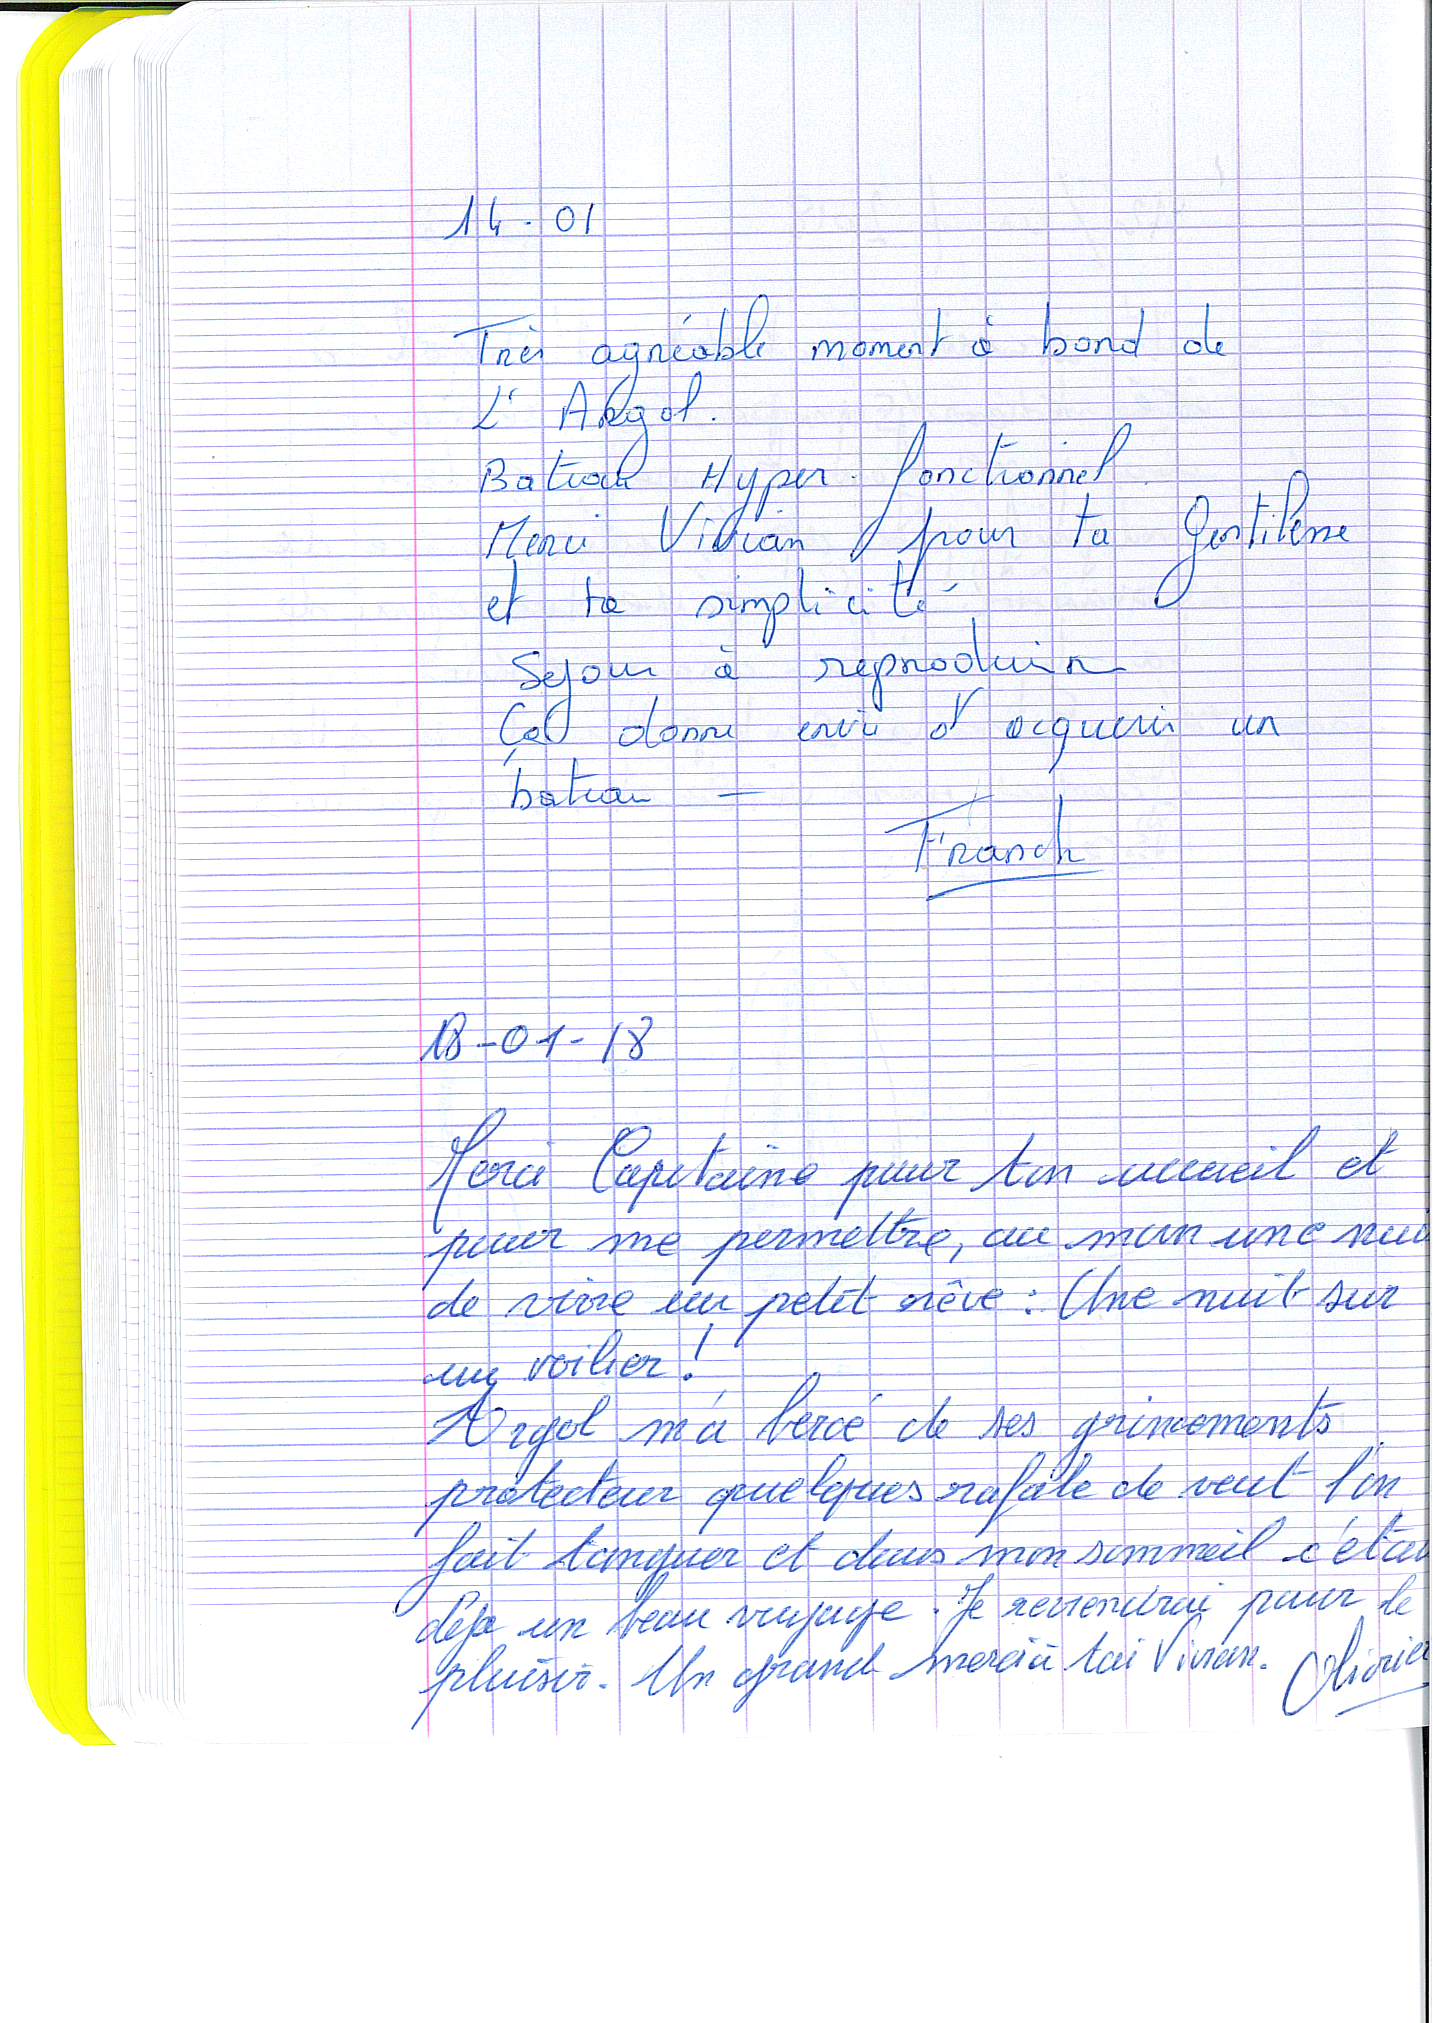 14-01
Très agréable moment à bord de
L'Argol.
Bateau Hyper fonctionnel
Merci Vivian pour ta Gentilesse
et ta simplicité
Sejour à reproduire
Ça donne envie d'acquerir un
bateau —
Franck
18-01-18
Merci Capitaine pour ton accueil et
pour me permettre, au moin une nui
de vivre un petit rêve : Une nuit sur
un voilier !
Argol m'a bercé de ses grincements
protecteur quelques rafale de vent l'on
fait tanguer et dans mon sommeil c'étai
déja un beau voyage. Je reviendrai pour le
plaisir. Un grand merci à toi Vivian. Olivier